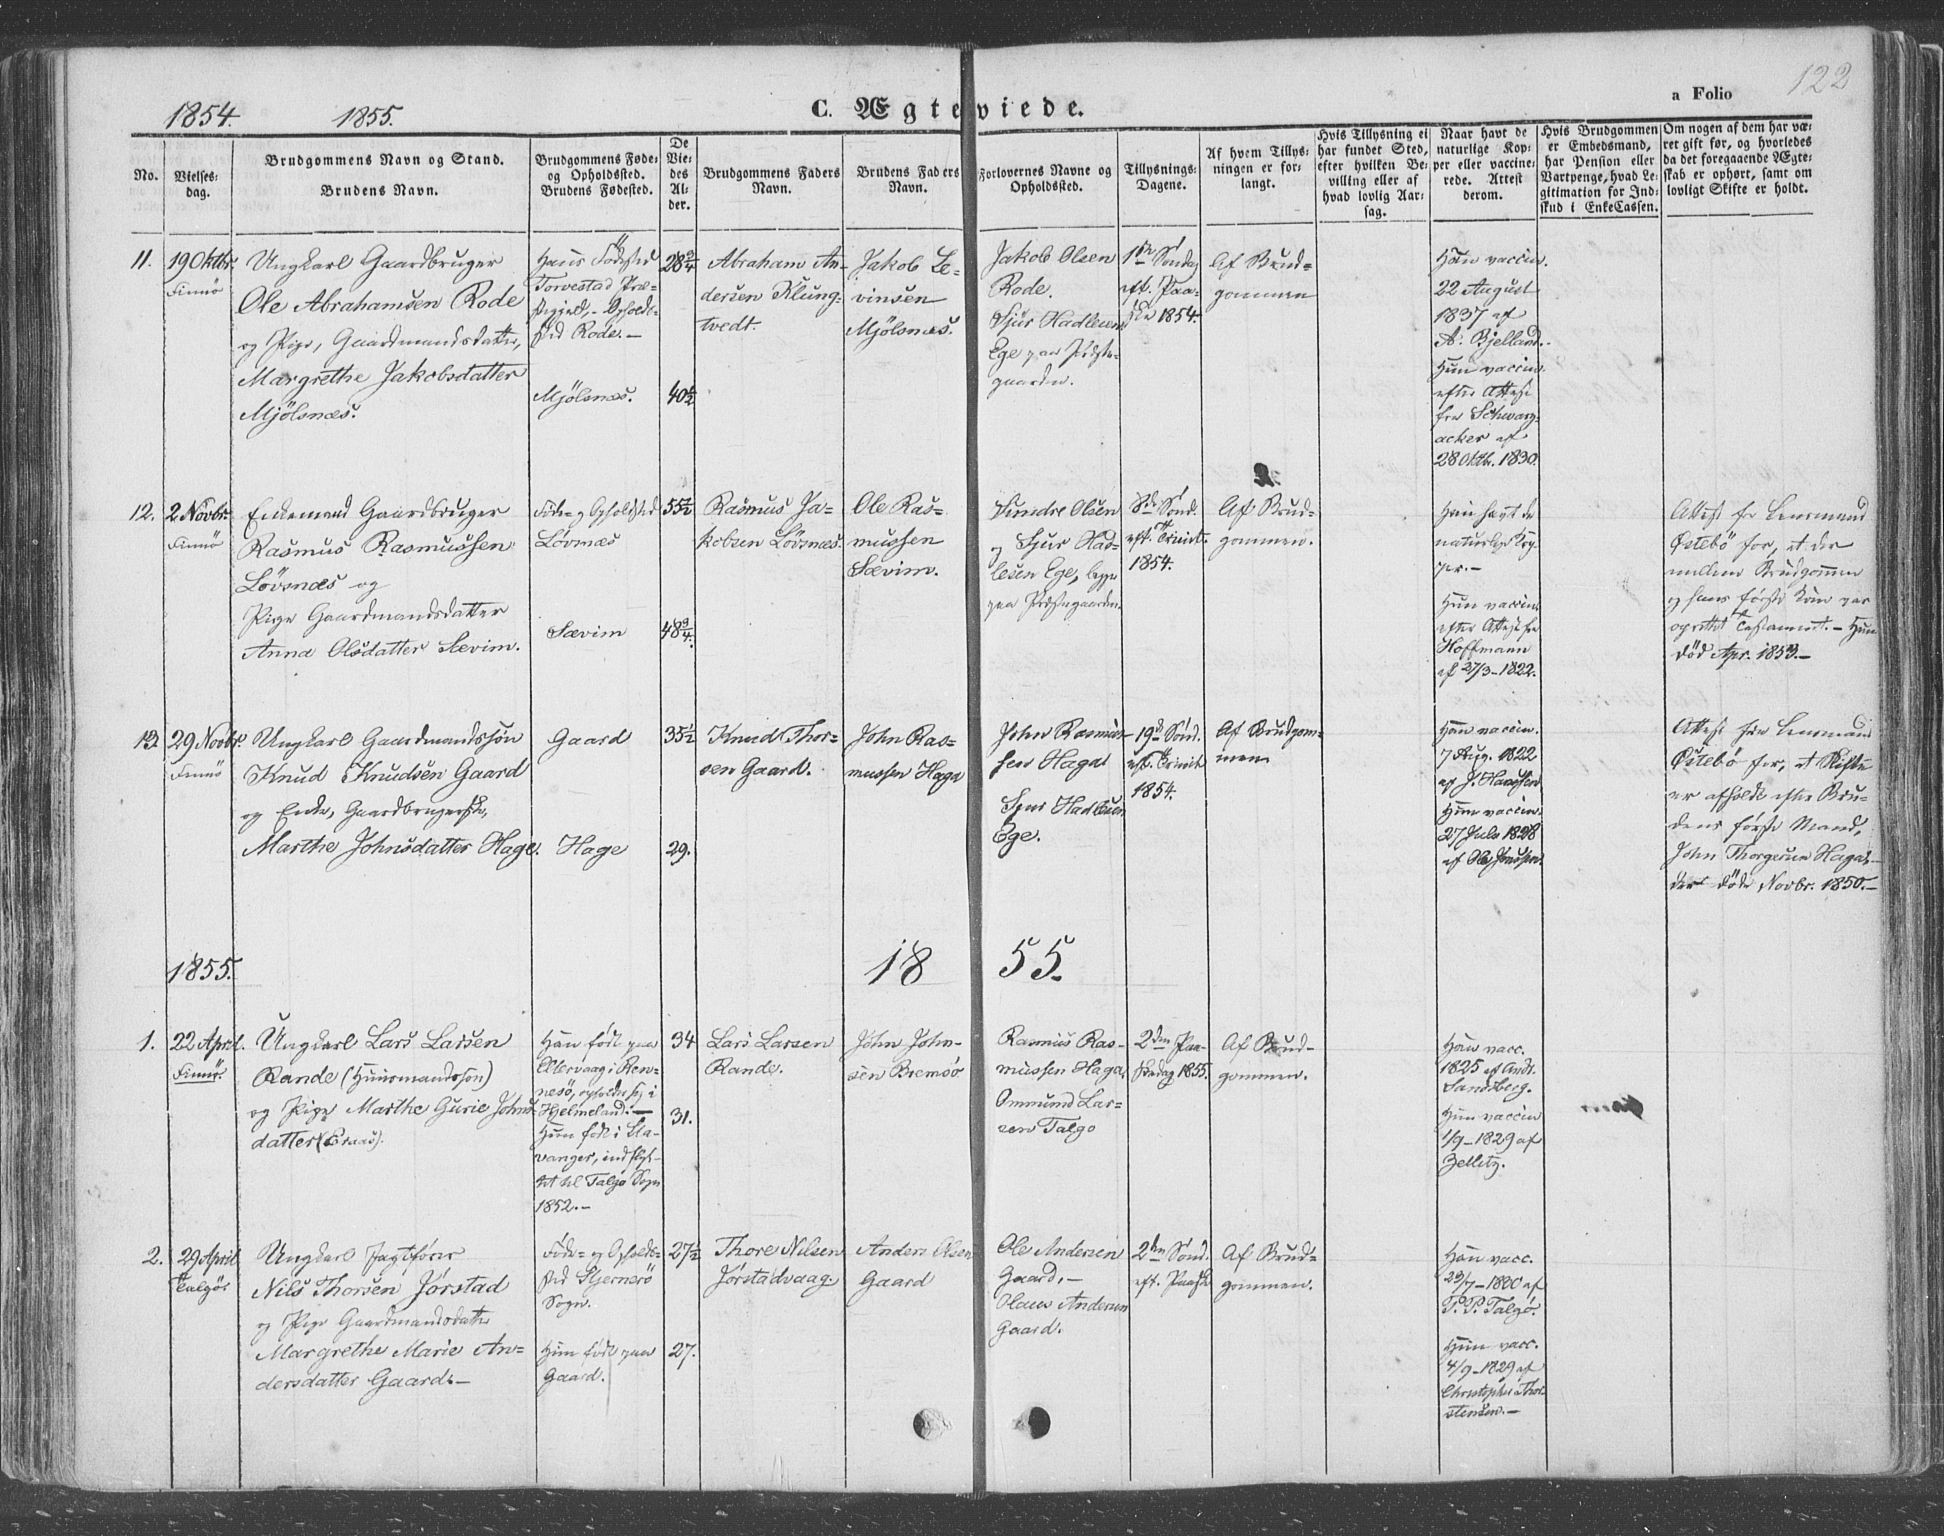 122
1854. 1855. C. Ægteviede. a Folio
No.
Vielses-
dag.
Brudgommens Navn og Stand.
Brudens Navn.
Brudgommens Føde-
og Opholdssted.
Brudens Fødested.
De
Vie-
des
Al-
der.
Brudgommens Faders
Navn.
Brudens Faders
Navn.
Forlovernes Navne og
Opholdssted.
Tillysnings-
Dagene.
Af hvem Tillys-
ningen er for-
langt.
Hvis Tillysning ei
har fundet Sted,
efter hvilken Be-
villing eller af
hvad lovlig Aar-
sag.
Naar havt de
naturlige Kop-
per eller vaccine-
rede. Attest
derom.
Hvis Brudgommen
er Embedsmand,
har Pension eller
Vartpenge, hvad Le-
gitimation for Ind-
skud i EnkeCassen.
Om nogen af dem har væ-
ret gift før, og hvorledes
da det foregaaende Ægte-
skab er ophørt, samt om
lovligt Skifte er holdt.
11.
19 Oktbr.
Finnö
Ungkarl Gaardbruger
Ole Abrahamsen Rode
og Pige, Gaardmandsdatter,
Margrethe Jakobsdatter
Mjölsnæs.
Hans Födested
Torvestad Præ-
stegjeld, - Opholds-
sted Rode. -
Mjölsnæs.
28 3/4
40 1/2
Abraham An-
dersen Klung-
tvedt.
Jakob Le-
vinsen
Mjölsnæs.
Jakob Olsen
Rode.
Sjur Hadlesen
Ege paa Præste-
gaarden.
1ste Söndag
eft. Paa-
ske 1854.
Af Brud-
gommen
Han vaccin.
22 August
1837 af
A. Bjelland.
Hun vaccin.
efter Attest
fra Schwarz-
acker af
28 Oktb. 1830.
12.
2 Novbr.
Finnö
Enkemand Gaardbruger
Rasmus Rasmussen
Lövsnæs og
Pige Gaardmandsdatter
Anna Olsdatter Sævim.
Föde- og Opholdssted
Lövnæs
Sævim
55 1/2
48 3/4.
Rasmus Ja-
kobsen Lövsnæs.
Ole Ras-
mussen
Sævim.
Olsen
og Sjur Had-
lesen Ege, begge
paa Præstegaarden.
Sönd.
eft. Trinit.
1854.
Af Brud-
gommen.
Han havt de
naturlige Kop-
per. -
Hun vaccin.
efter Attest fra
Hoffmann
af 27/3 - 1822.
Attest fra Lensmand
Östebö for, at der
mellem Brudgommen
og hans förste Kone var
oprettet Testament. - Hun
död Apr. 1853. -
13.
29 Novbr.
Finnö
Ungkarl Gaardmandssön
Knud Knudsen Gaard
og Enke, Gaardbrugerske,
Marthe Johnsdatter Hage.
Gaard
Hage
35 1/2
29.
Knud Thor-
sen Gaard.
John Ras-
mussen Haga
John Rasmus-
sen Haga
Sjur Hadlesen
Ege.
19de Sönd.
eft. Trinit.
1854.
Af Brudgom-
men
Han vaccin.
7 Aug. 1822
af J. Haaesen
Hun vaccin.
27 Juli 1828
af Ole
Attest fra Lensmand
Östebö for, at Skifte
er afholdt efter Bru-
dens förste Mand,
John Thorgersen Haga, -
der döde Novbr. 1850. -
1855. 18 55.
1.
22 April.
Finnö.
Ungkarl Lars Larsen
Rande (Huusmandssön)
og Pige Marthe Gurie Johns-
datter
Han födt paa
Ellevaag i Ren-
nesö, opholder sig i
Hjelmeland. -
Hun födt i Sta-
vanger, indflyt-
tet til Talgö Sogn
1852. -
34
31.
Lars Larsen
Rande.
John John-
sen Bremsö
Rasmus Ras-
mussen Haga
Ommund Lar-
sen Talgo
2den Paa-
skedag 1855.
Af Brud-
gommen.
Han vacc.
1825 af Andr.
Sandsberg.
Hun vaccin
1/9 - 1829 af
Zellitz.
2.
29 April
Talgö.
Ungkarl Jagtförer
Nils Thorsen Jörstad
og Pige Gaardmandsdatter
Margrethe Marie An-
dersdatter Gaard. -
Föde- og Opholds-
sted Hjernerö
Sogn.
Hun födt paa
Gaard.
27 1/2
27.
Thore Nilsen
Jörstadvaag.
Anders Olsen
Gaard
Ole Andersen
Gaard, -
Andersen
Gaard.
2den Sönd.
eft. Paaske
Af Brud-
gommen.
Han vacc.
af
T. P. Talgö.
Hun vacc.
4/9 - 1829 af
Christopher Thor-
stensen. -